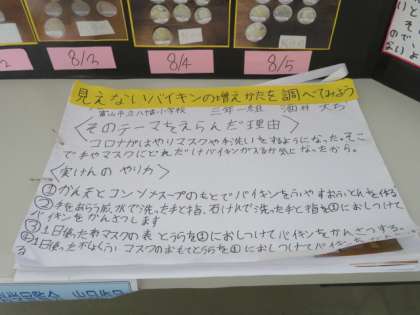 8/3
8/4
8/5
見えないバイキンの増えかたを調べてみよう
富山市立八幡小学校 三年一組 酒井 大ち
〈そのテーマをえらんだ理由〉
コロナがはやりマスクや手洗いをするようになった。そこ
で手やマスクにどれだけバイキンがいるか気になったから。
〈実けんのやりカ〉
①かんそとコンソメスープのもとでバイキンをふやすおふとんを作る
②手をあらう前、水で洗った手と指、石けんで洗った手と指を①におしつけて
バイキンをかんさつします
③1日使った布マスクの表とうらを①におしつけてバイキンをかんさつする。
④1日使ったふしょくふマスクのおもてとうらを①におしつけてバイキンを